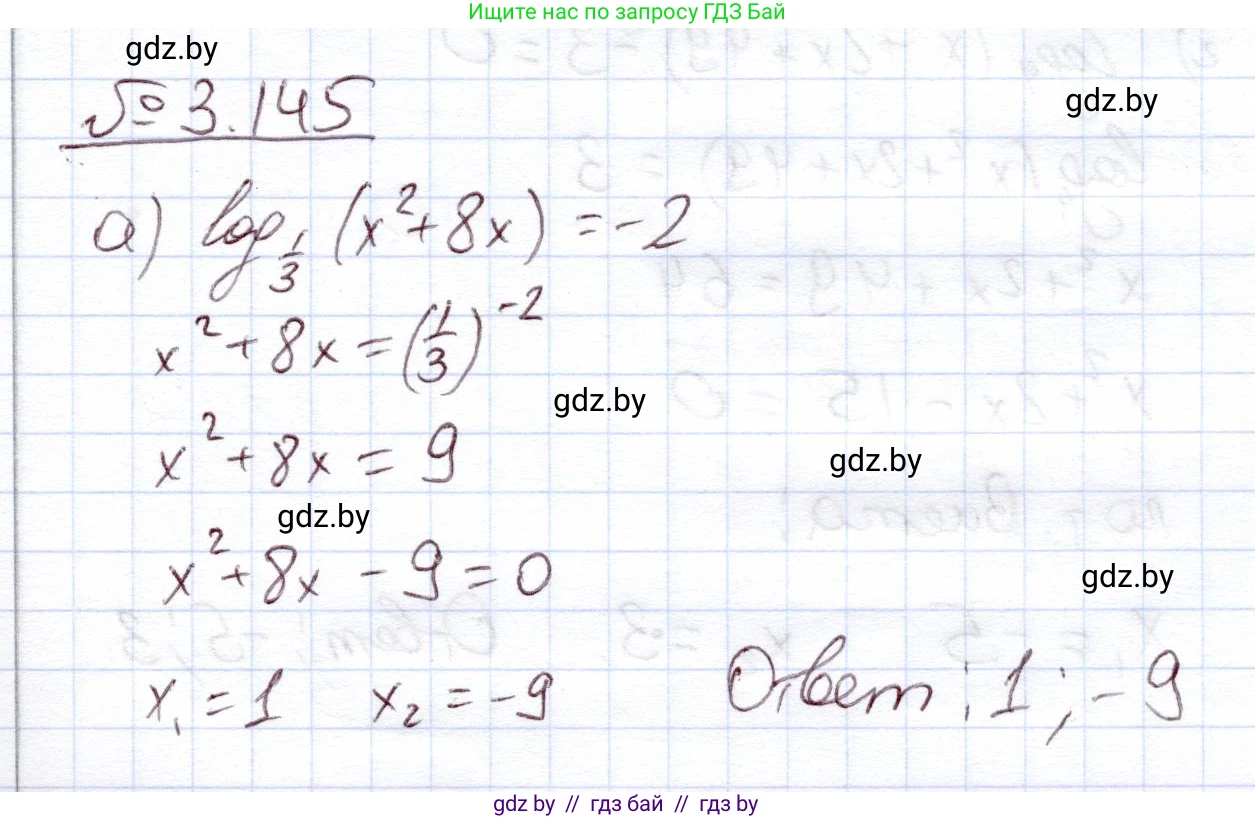 Ищите нас по запросу ГДЗ Бай
gdz.by
№ 3.145
gdz.by
а) log_{1/3} (x² + 8x) = -2
x² + 8x = (1/3)^{-2}
gdz.by
x² + 8x = 9
gdz.by
gdz.by
x² + 8x - 9 = 0
gdz.by
x₁ = 1 x₂ = -9
Ответ: 1; -9
gdz by // гдз бай // гдз by